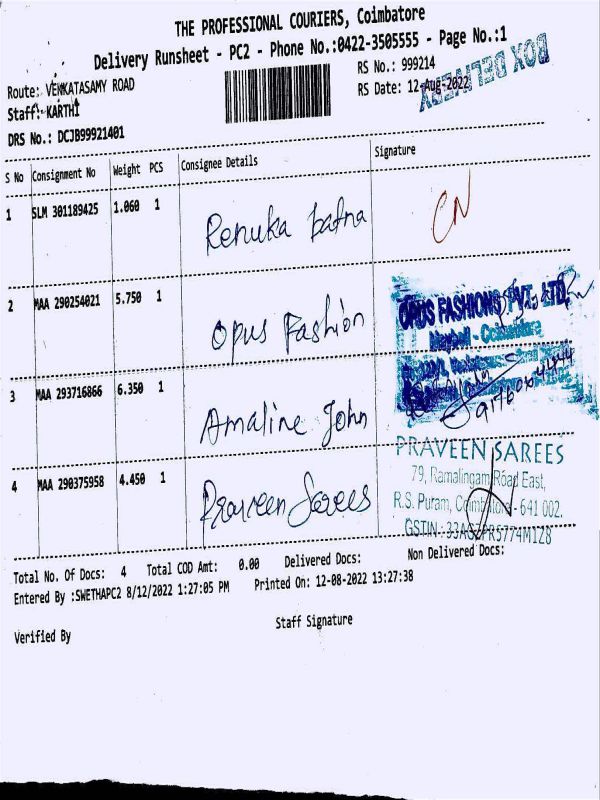 THE PROFESSIONAL COURIERS, Coimbatore
Delivery Runsheet - PC2 - Phone No.:0422-3505555 - Page No.:1
Route: VENKATASAMY ROAD
RS No.: 999214
Staff: KARTHI
RS Date: 12-Aug-2022
BOX DELIVERY
DRS No.: DCJB99921401
S No Consignment No Weight PCS Consignee Details Signature
1 SLM 301189425 1.060 1 Renuka bafna CN
2 MAA 290254021 5.750 1 Opus Fashion
OPUS FASHIONS PVT. LTD.
Coimbatore
3 MAA 293716866 6.350 1 Amaline John
4 MAA 290375958 4.450 1 Praveen Sarees
PRAVEEN SAREES
79, Ramalingam Road East,
R.S. Puram, Coimbatore - 641 002.
Total No. Of Docs: 4 Total COD Amt: 0.00 Delivered Docs: Non Delivered Docs:
Entered By :SWETHAPC2 8/12/2022 1:27:05 PM Printed On: 12-08-2022 13:27:38
Verified By Staff Signature